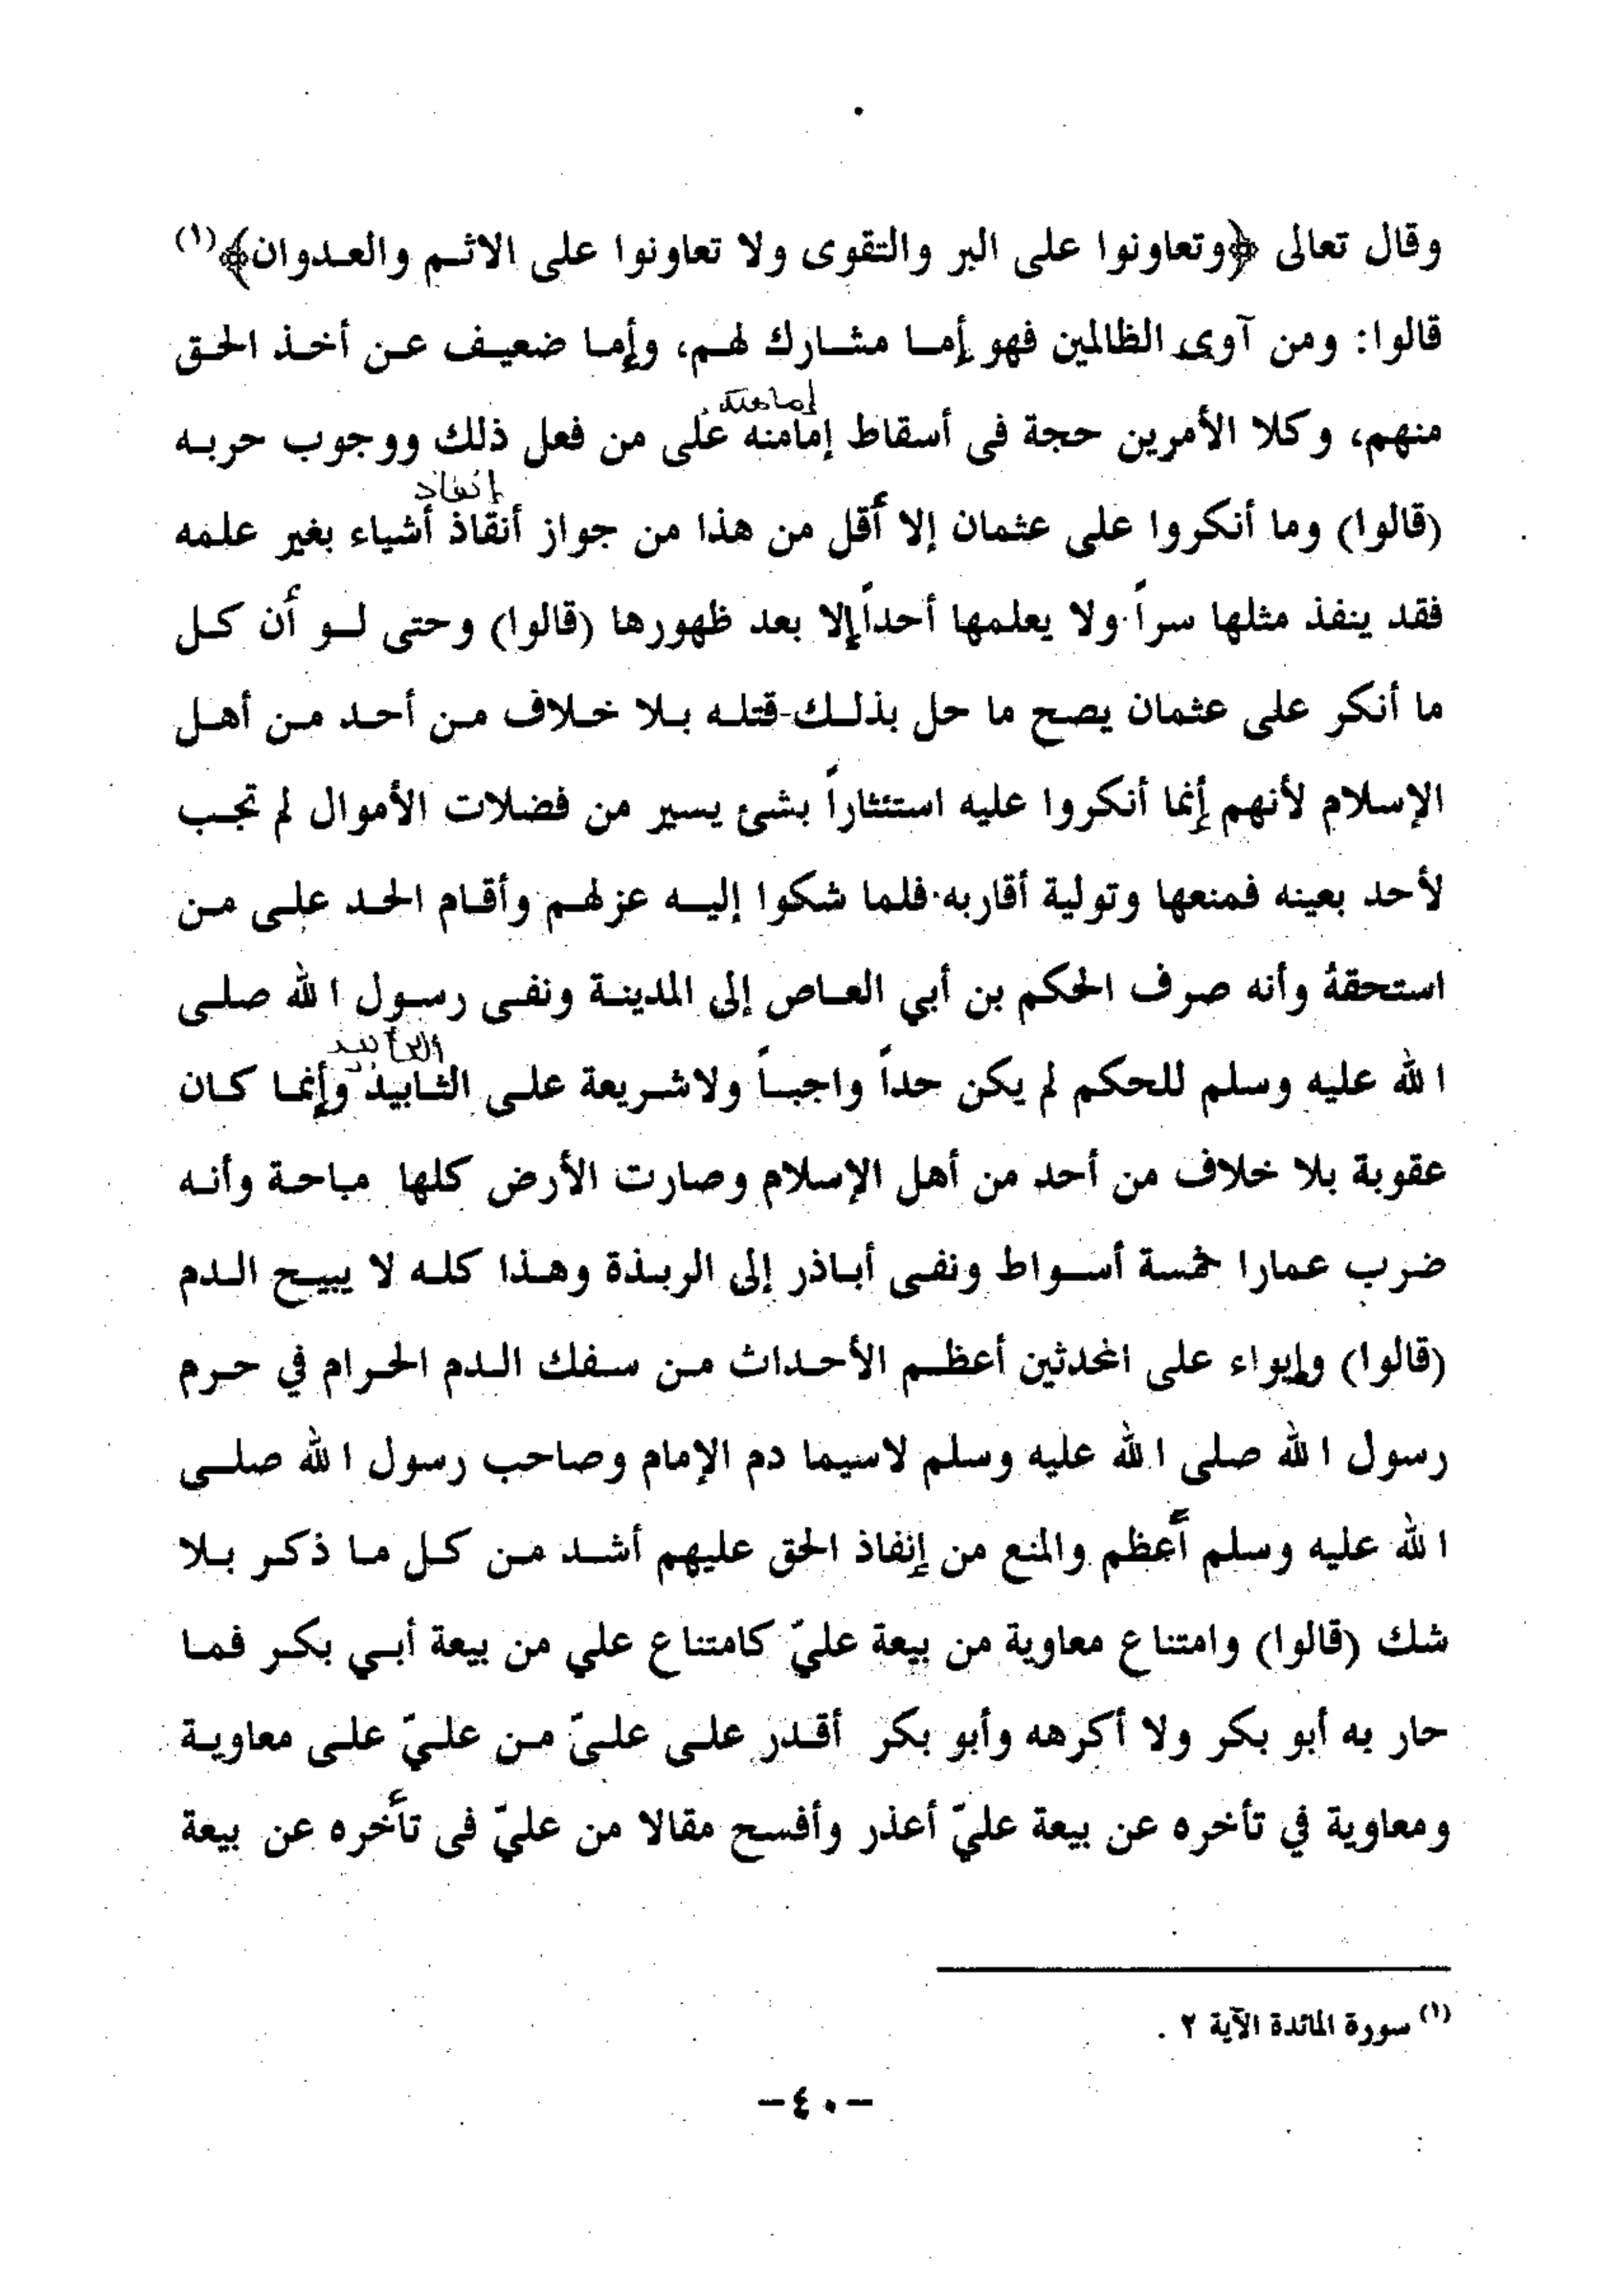 وقال تعالى ﴿وتعاونوا على البر والتقوى ولا تعاونوا على الاثم والعدوان﴾(١)
قالوا: ومن آوى الظالمين فهو إما مشارك لهم، وإما ضعيف عن أخذ الحق
إمامته
منهم، وكلا الأمرين حجة فى أسقاط إمامنه على من فعل ذلك ووجوب حربه
إنفاذ
(قالوا) وما أنكروا على عثمان إلا أقل من هذا من جواز أنقاذ أشياء بغير علمه
فقد ينفذ مثلها سراً ولا يعلمها أحداً إلا بعد ظهورها (قالوا) وحتى لو أن كل
ما أنكر على عثمان يصح ما حل بذلك قتله بلا خلاف من أحد من أهل
الإسلام لأنهم إنما أنكروا عليه استئثاراً بشئ يسير من فضلات الأموال لم تجب
لأحد بعينه فمنعها وتولية أقاربه فلما شكوا إليه عزلهم وأقام الحد على من
استحقة وأنه صرف الحكم بن أبي العاص إلى المدينة ونفى رسول الله صلى
التأبيد
الله عليه وسلم للحكم لم يكن حداً واجباً ولاشريعة على الثابيد وإنما كان
عقوبة بلا خلاف من أحد من أهل الإسلام وصارت الأرض كلها مباحة وأنه
ضرب عمارا خمسة أسواط ونفى أباذر إلى الربذة وهذا كله لا يبيح الدم
(قالوا) وإيواء على المحدثين أعظم الأحداث من سفك الدم الحرام في حرم
رسول الله صلى الله عليه وسلم لاسيما دم الإمام وصاحب رسول الله صلى
الله عليه وسلم أعظم والمنع من إنفاذ الحق عليهم أشد من كل ما ذكر بلا
شك (قالوا) وامتناع معاوية من بيعة عليّ كامتناع علي من بيعة أبي بكر فما
حار به أبو بكر ولا أكرهه وأبو بكر أقدر على علىّ من عليّ على معاوية
ومعاوية في تأخره عن بيعة عليّ أعذر وأفسح مقالا من عليّ فى تأخره عن بيعة
(١) سورة المائدة الآية ٢ .
-٤٠-